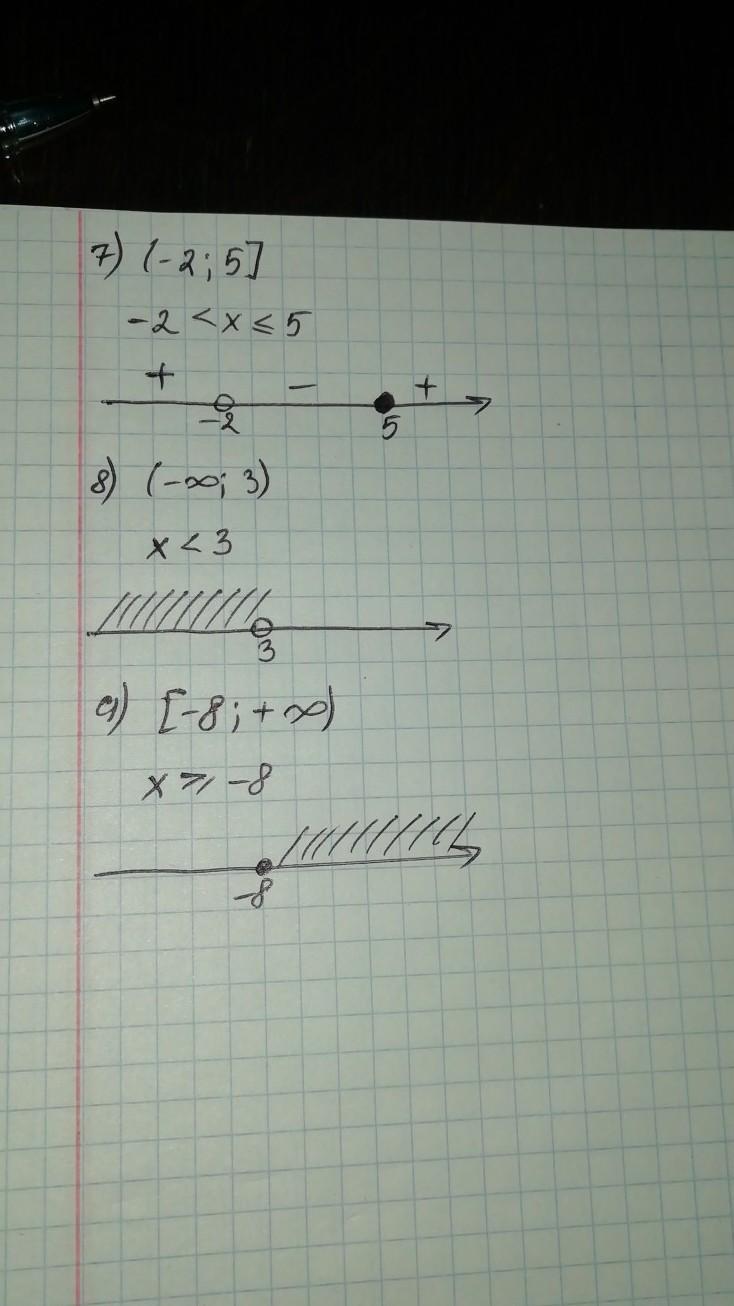 7) (-2; 5]
-2 < x ≤ 5
+ - +
-2 5
8) (-∞; 3)
x < 3
3
9) [-8; +∞)
x ≥ -8
-8